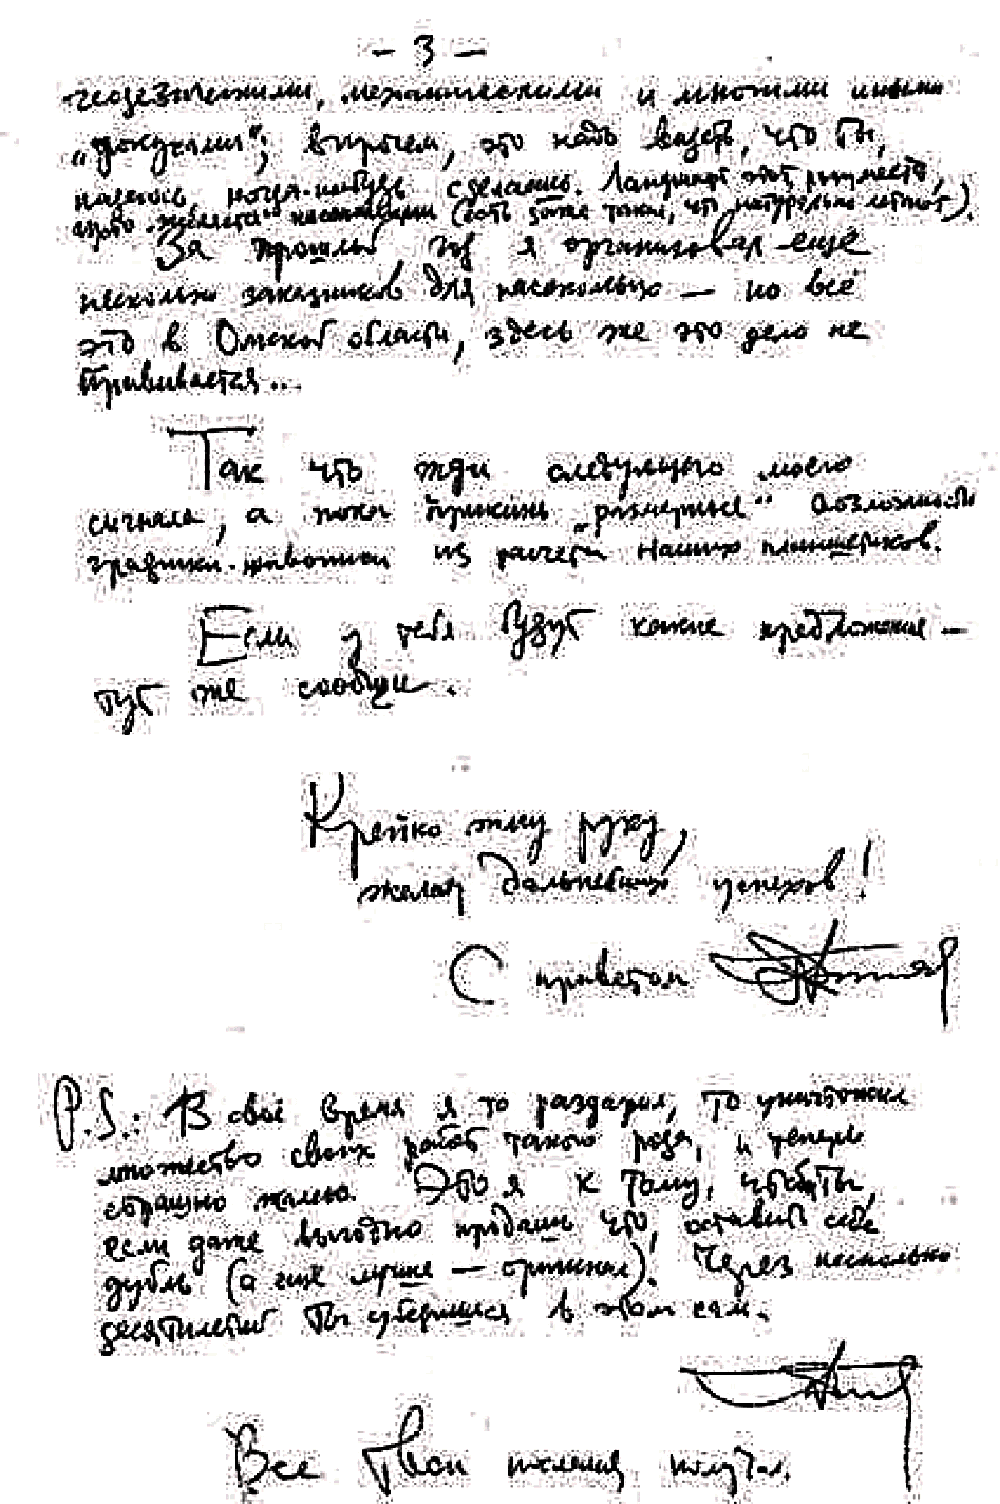 — 3 —
механическими и многими иными
"докуками"; впрочем, это надо видеть, что Ты,
надеюсь, когда-нибудь сделаешь. Ландшафт этот, разумеется,
насекомыми (есть даже такой, что натурально летает).
За прошлый год я организовал еще
несколько заказников для насекомых — но всё
это в Омской области, здесь же это дело не
прививается...
Так что жди следующего моего
сигнала, а пока прикинь "размерные" возможности
графики-живописи из расчета наших планшетиков.
Если у тебя будут какие предложения —
тут же сообщи.
Крепко жму руку,
желаю дальнейших успехов!
С приветом
P.S.: В своё время я то раздарил, то уничтожил
множество своих работ такого рода, и теперь
страшно жалею. Это я к тому, чтобы Ты,
если даже выгодно продашь что, оставил себе
дубль (а ещё лучше — оригинал)! Через несколько
десятилетий Ты убедишься в этом сам.
Все Твои послания получил.